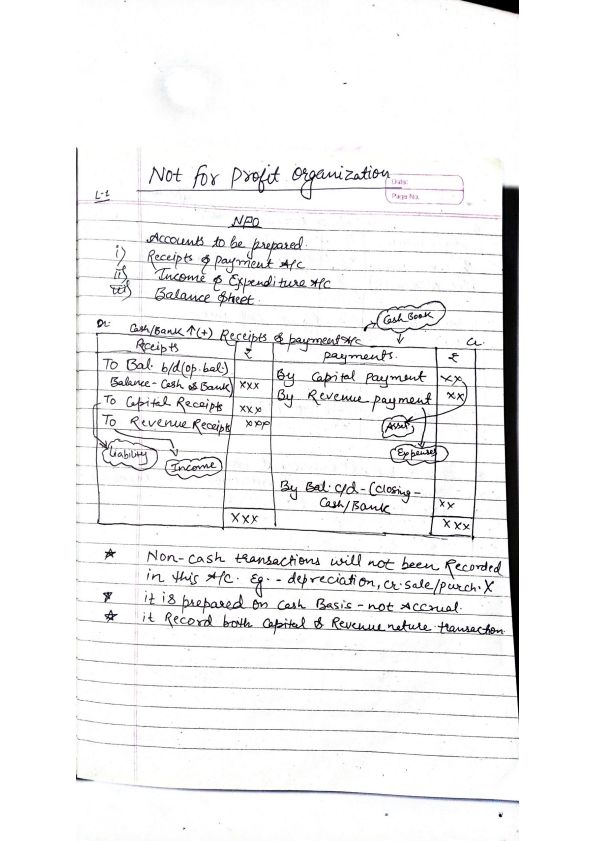 Not for Profit Organization
Date:
Page No.
L-1
NPO
Accounts to be prepared.
i) Receipts & payment A/c
ii) Income & Expenditure A/c
iii) Balance Sheet.
Cash Book
Dr. Cash/Bank ↑(+) Receipts & payment A/c Cr.
Receipts ₹ payments. ₹
To Bal. b/d (op. bal.)
Balance - Cash & Bank) xxx
By Capital payment xx
To Capital Receipts xxx
By Revenue payment xx
To Revenue Receipts xxx
Asset
Liability
Income
Expenses
By Bal. c/d - (Closing -
Cash/Bank xx
xxx xxx
☆ Non-cash transactions will not been Recorded
in this A/c. Eg. - depreciation, Cr. sale/purch. X
☆ it is prepared on Cash Basis - not Accrual.
☆ it Record both Capital & Revenue nature transaction.